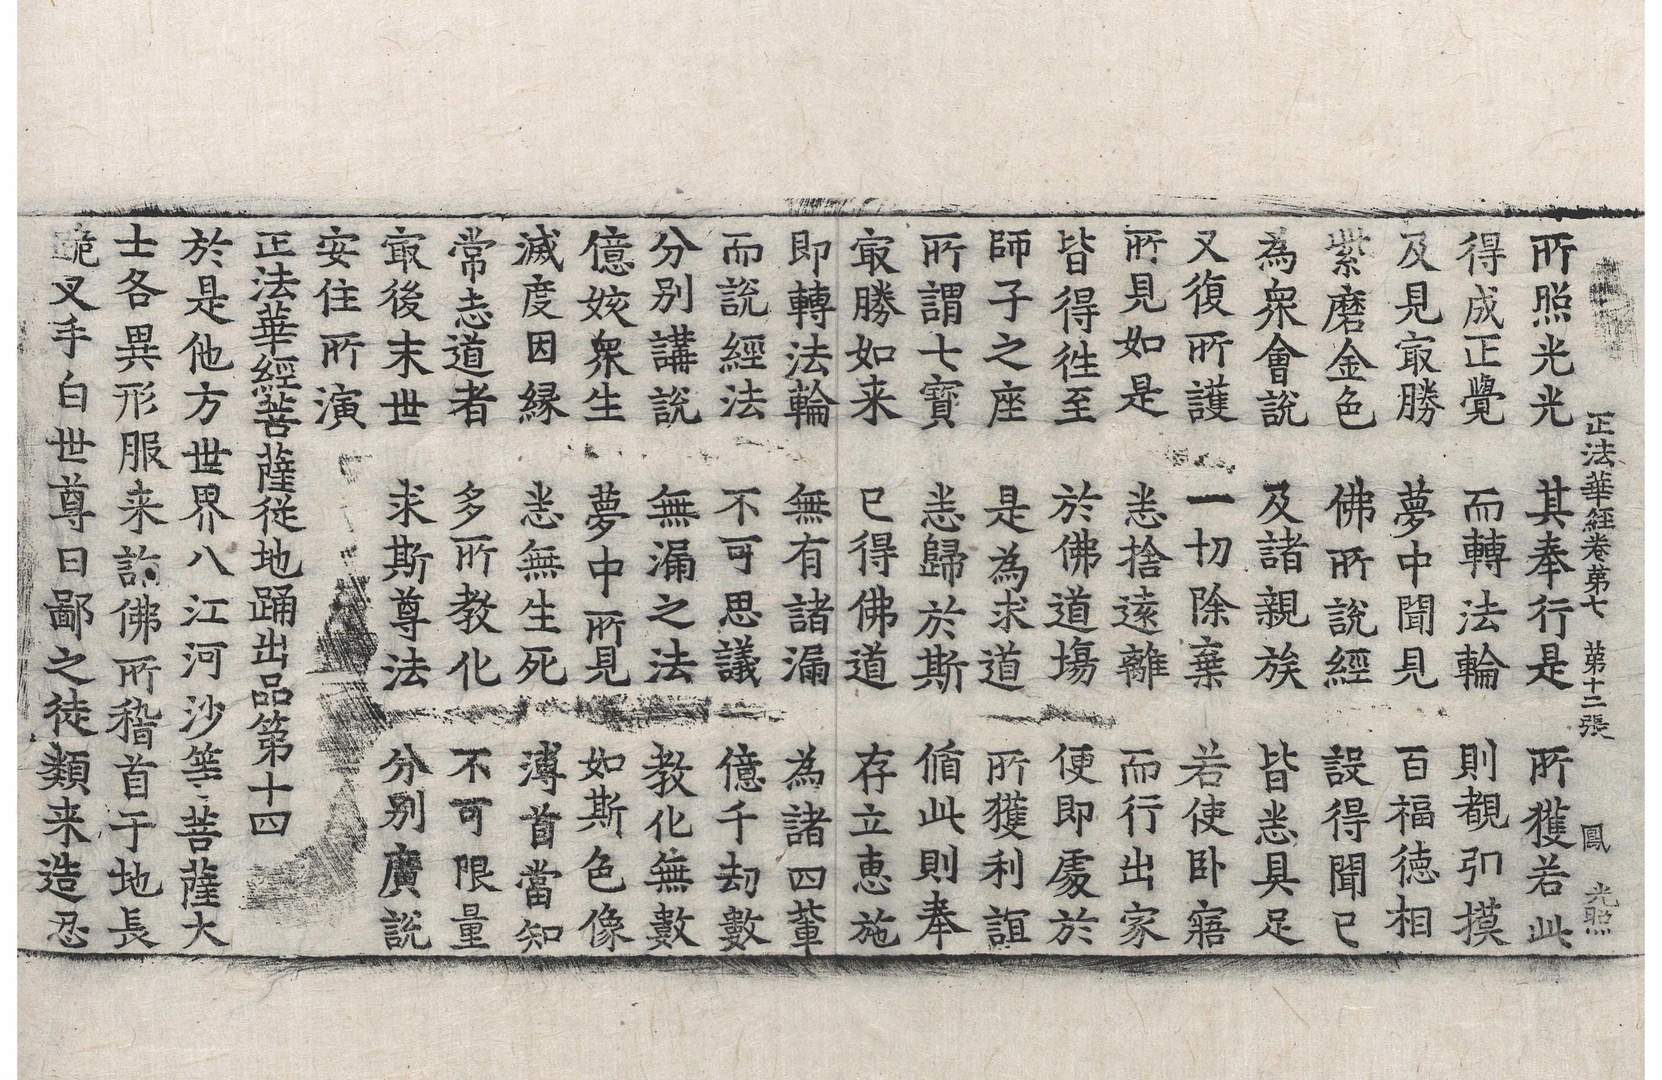 正法華經卷第七　第十二張　鳳　光照
所照光光　其奉行是　所獲若此
得成正覺　而轉法輪　則覩引摸
及見㝡勝　夢中聞見　百福德相
紫磨金色　佛所說經　設得聞已
為衆會說　及諸親族　皆悉具足
又復所護　一切除棄　若使卧寤
所見如是　悉捨遠離　而行出家
皆得徃至　於佛道塲　便即處於
師子之座　是為求道　所獲利誼
所謂七寳　悉歸於斯　循此則奉
㝡勝如来　已得佛道　存立惠施
即轉法輪　無有諸漏　為諸四輩
而說經法　不可思議　億千劫數
分别講說　無漏之法　教化無數
億姟衆生　夢中所見　如斯色像
滅度因縁　悉無生死　溥首當知
常志道者　多所教化　不可限量
㝡後末世　求斯尊法　分别廣說
安住所演
正法華經菩薩從地踊出品第十四
於是他方世界八江河沙等菩薩大
士各異形服来詣佛所稽首于地長
跪叉手白世尊曰鄙之徒類来造忍